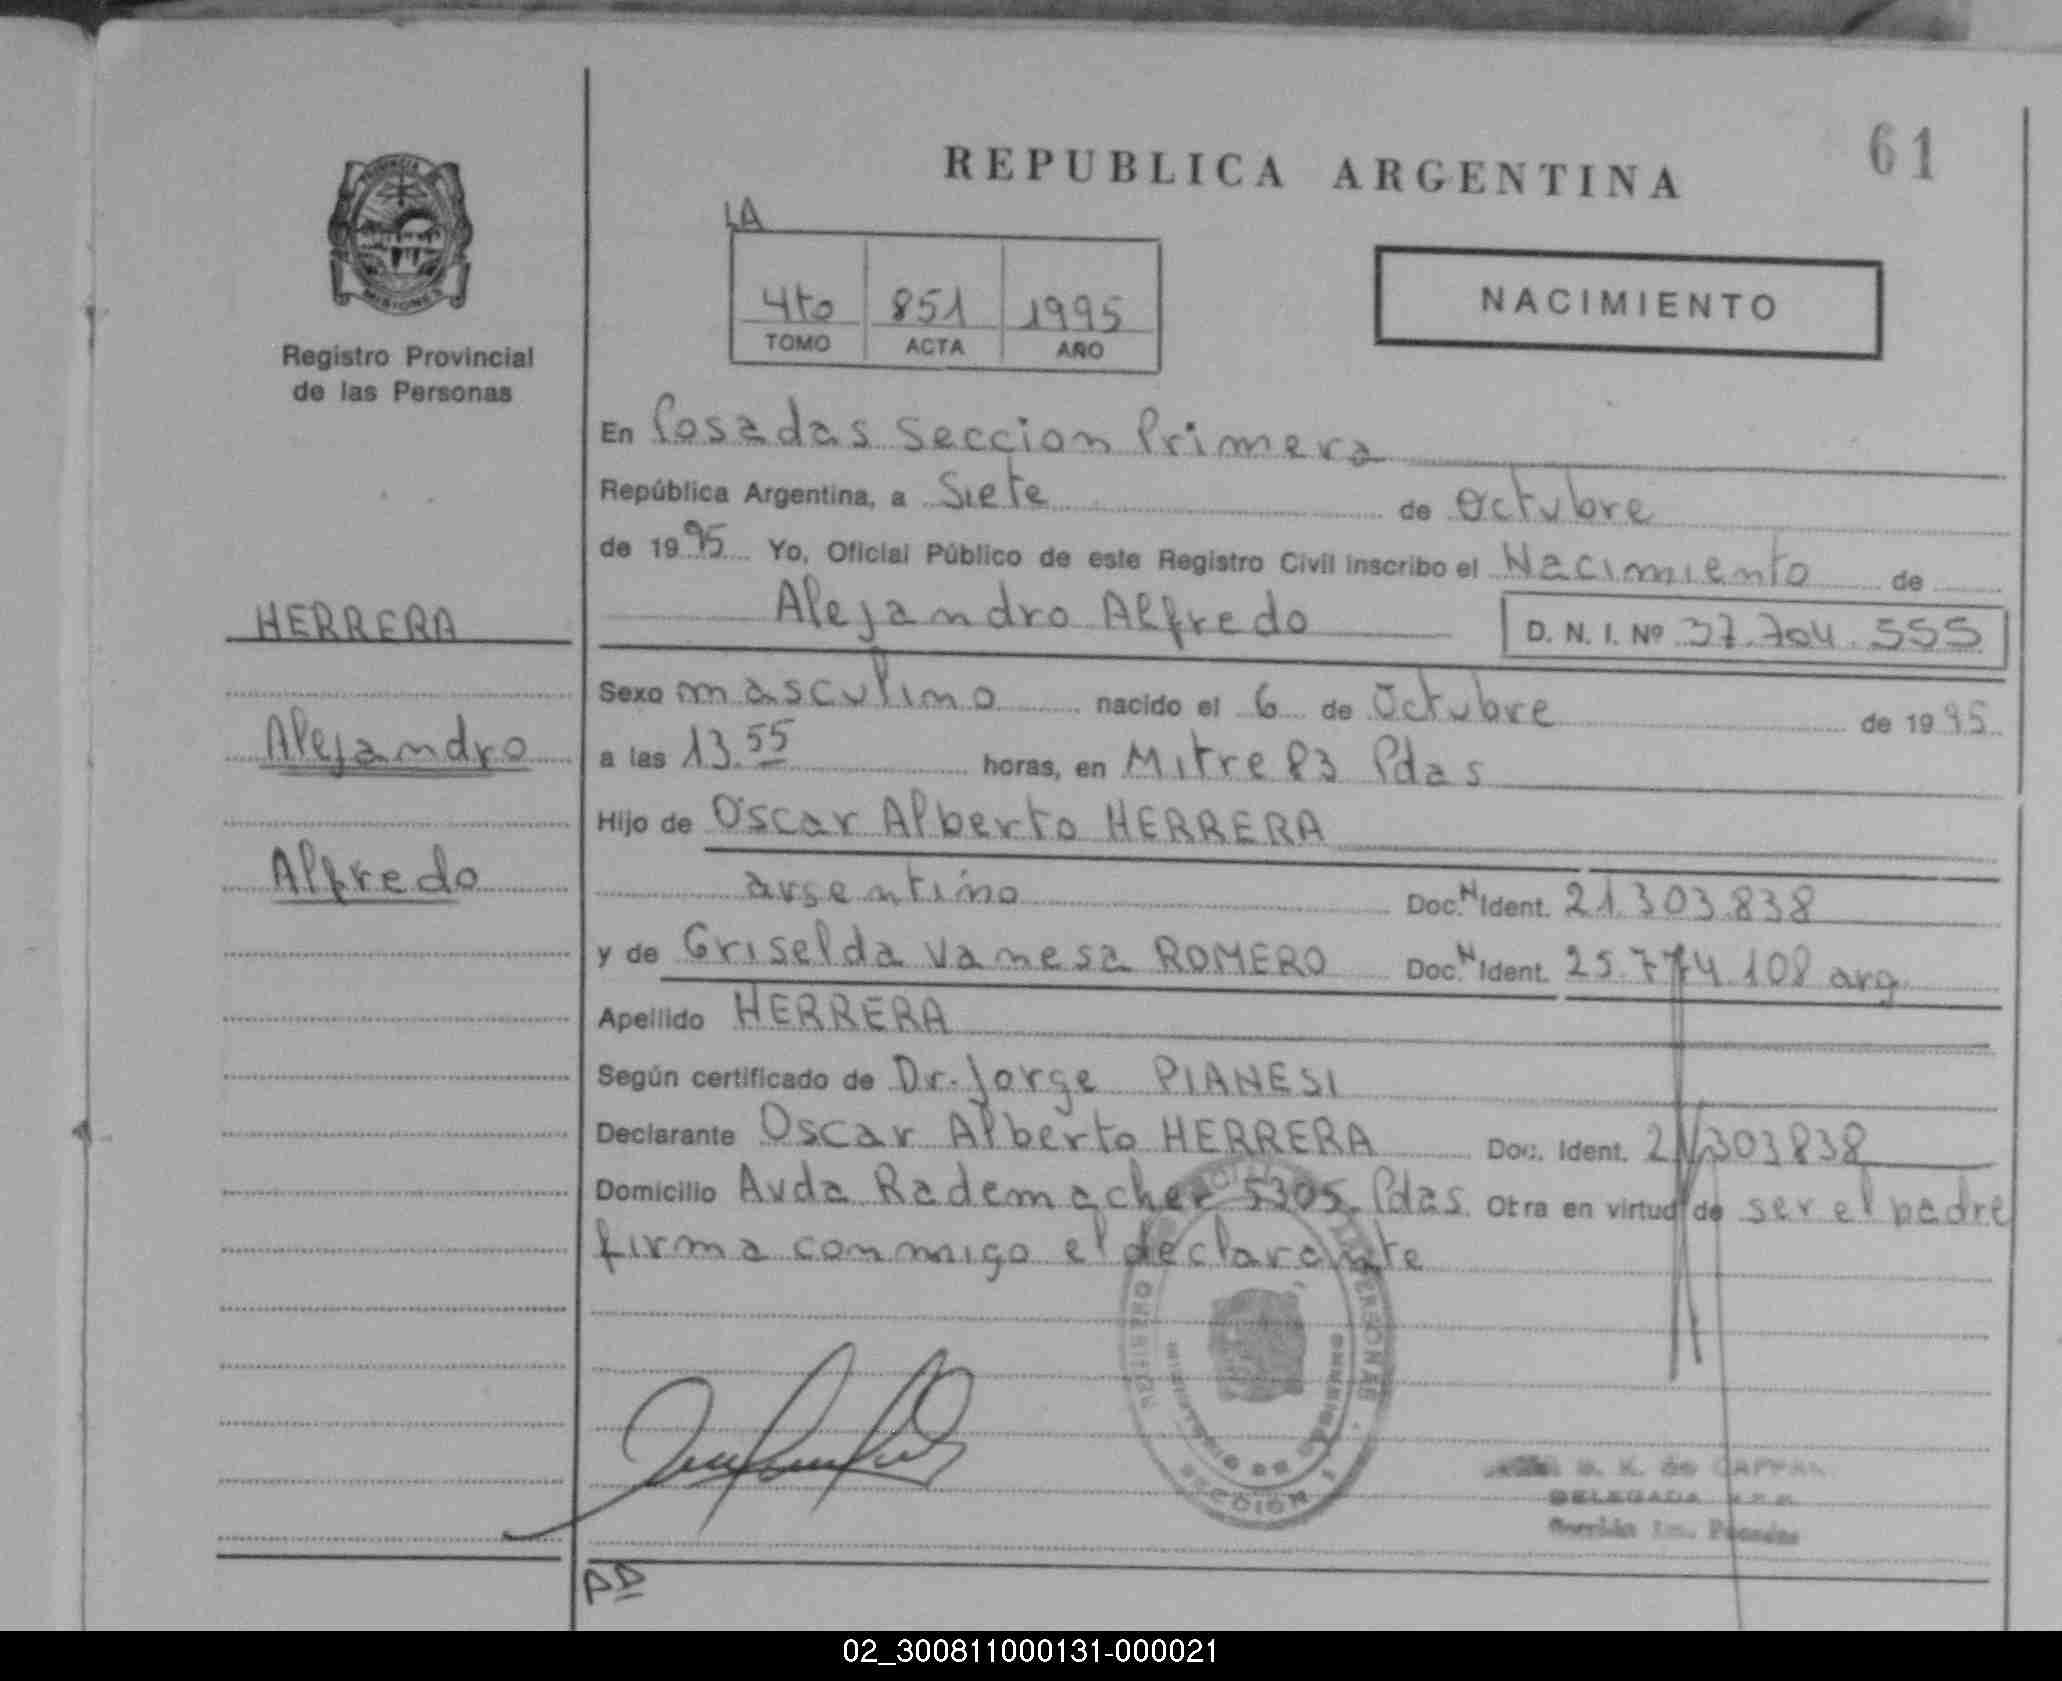 61
REPUBLICA ARGENTINA
PROVINCIA
MISIONES
Registro Provincial
de las Personas
LA
4to 851 1995
TOMO ACTA AÑO
NACIMIENTO
En Posadas Seccion Primera
República Argentina, a Siete de Octubre
de 1995 Yo, Oficial Público de este Registro Civil inscribo el Nacimiento de
HERRERA
Alejandro Alfredo D. N. I. Nº 37.704.555
Sexo masculino nacido el 6 de Octubre de 1995
Alejandro
a las 13.55 horas, en Mitre 83 Pdas
Hijo de Oscar Alberto HERRERA
Alfredo
argentino Doc. N Ident. 21.303.838
y de Griselda Vanesa ROMERO Doc. N Ident. 25.774.108 arg
Apellido HERRERA
Según certificado de Dr. Jorge PIANESI
Declarante Oscar Alberto HERRERA Doc. Ident. 21303838
Domicilio Avda Rademacher 5305 Pdas. Otra en virtud de ser el padre
firma conmigo el declarante
PERSONAS
SECCION 1
DELEGADA
Posadas
02_300811000131-000021